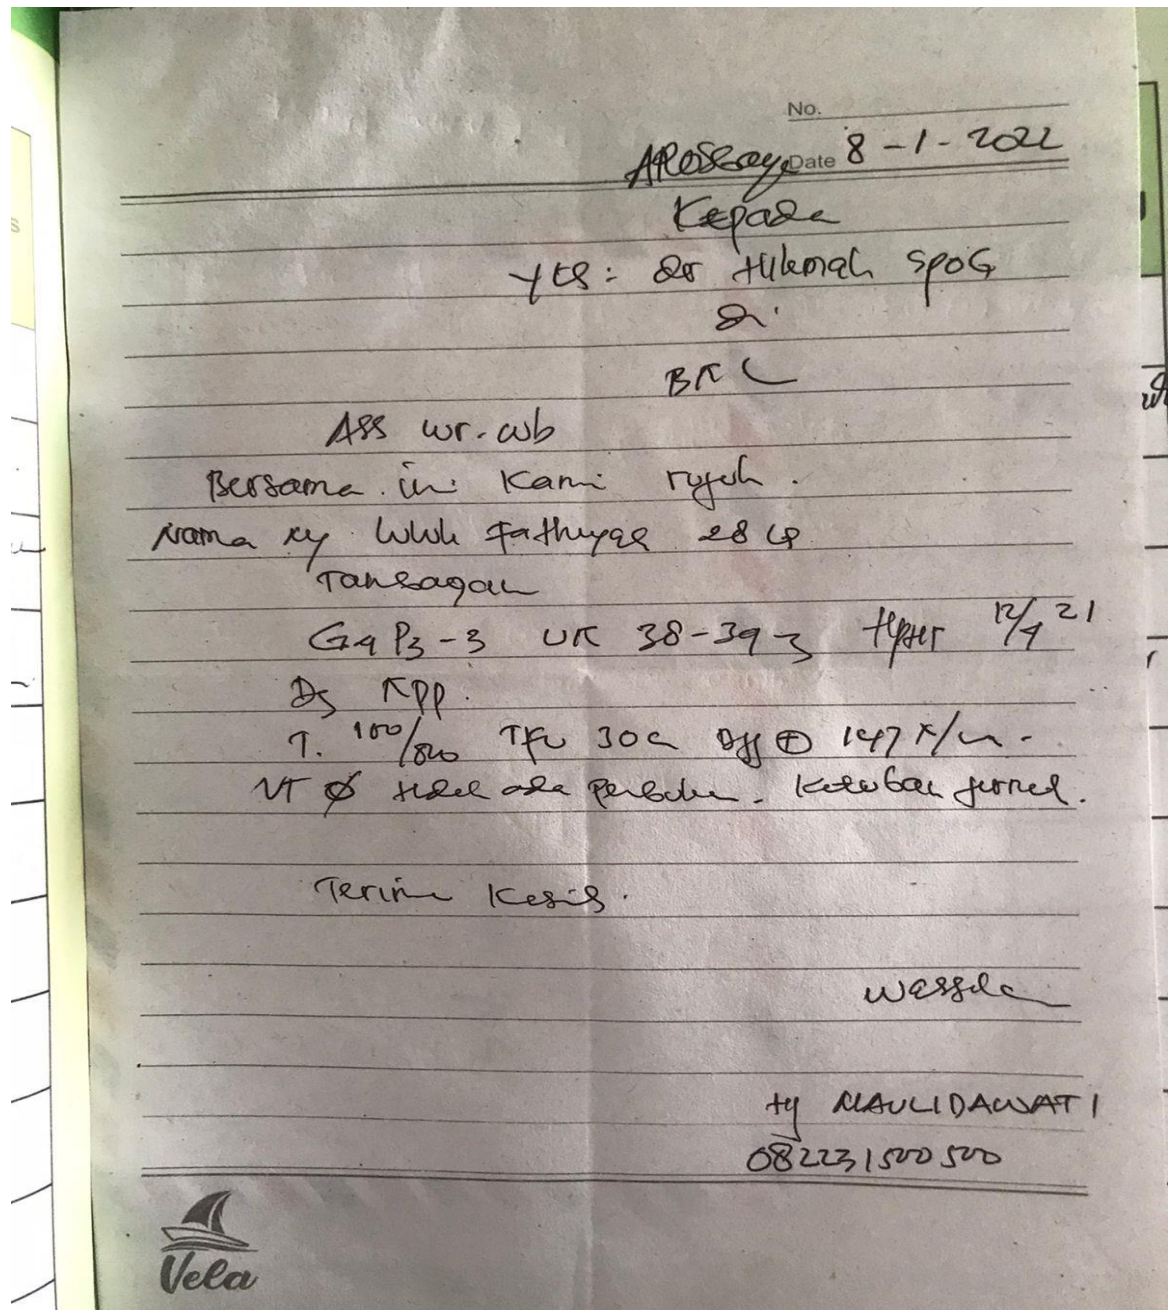 No.
Arosbaya Date 8-1-2022
Kepada
Yts: dr Hikmah SpOG
di
BKL
Ass wr. wb
Bersama ini Kami rujuk.
Nama Ny Luluk Fathiyah 28
G4 P3-3 UK 38-39 HPHT 12/4 21
Dg KPP.
T. 100/80 TFU 30 DJJ ⊕ 147 x/m.
VT Ø tidak ada pembukaan. Ketuban
Terima Kasih.
Wassalam
ttg MAULIDAWATI
082231500500
Vela